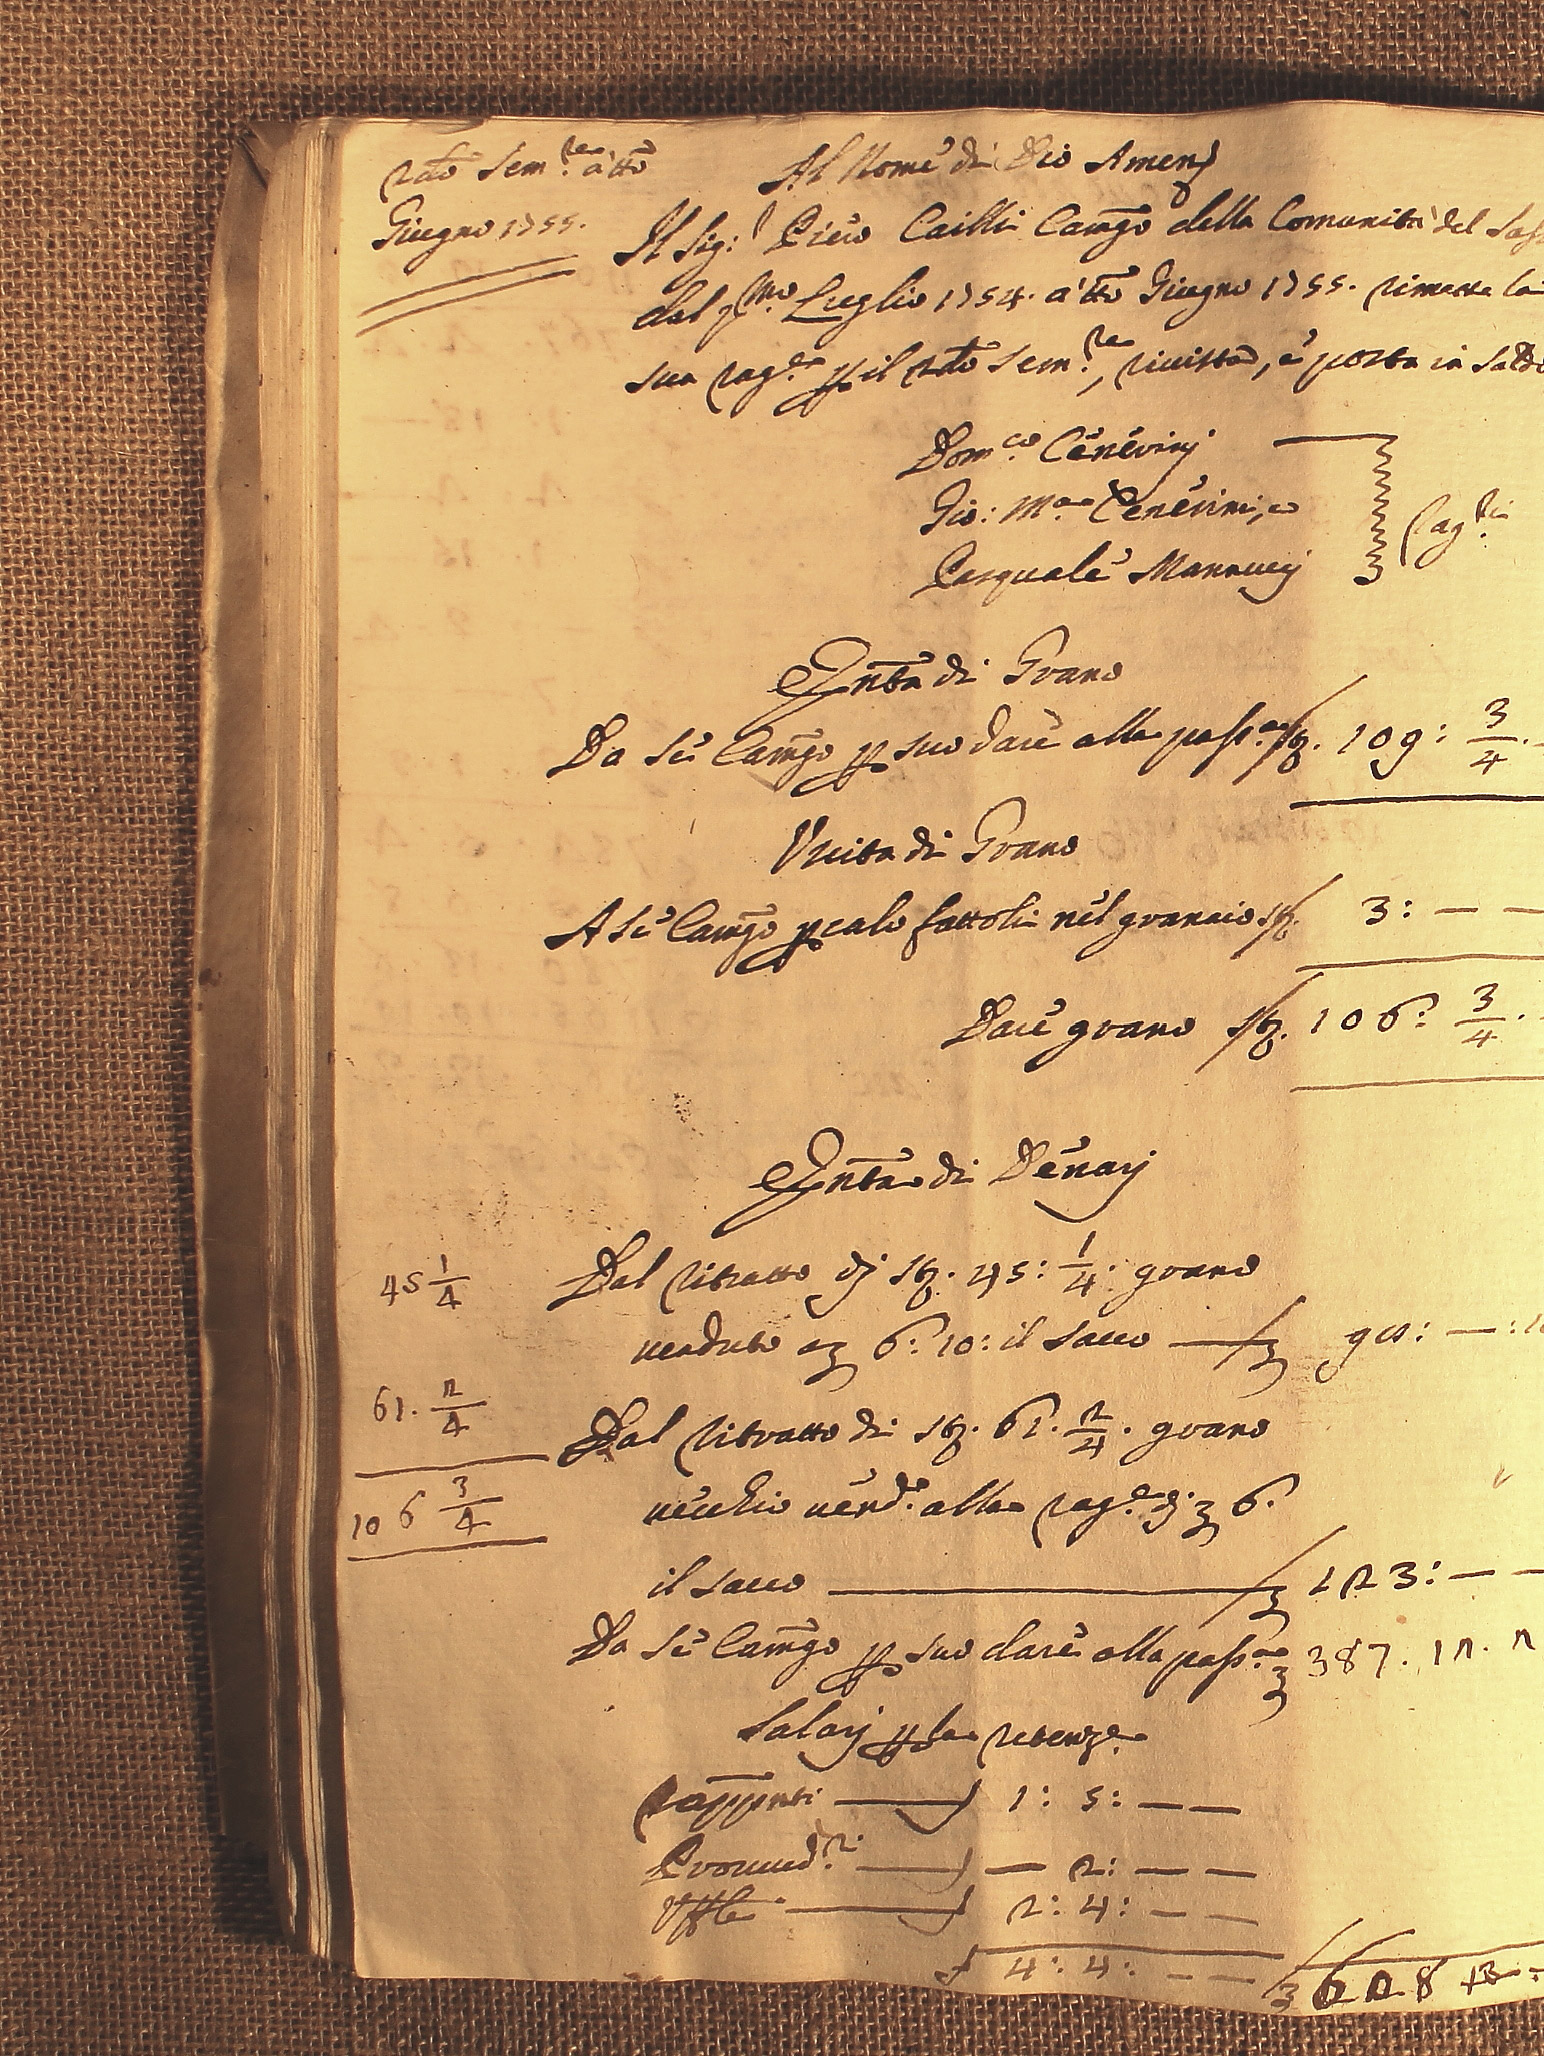 2do Sem.re a tto
Giugno 1755.
Al Nome di Dio Amen
Il Sig.r Piero Cailli Camgo della Comunità del
dal pmo Luglio 1754. a tto Giugno 1755. rimette la
sua rag.e p il 2do Sem.re, rivista, e posta in Saldo
Dom.co Cenèvinj
Gio: Ma Cenèvini, e
Pasquale Mannucij
Rag.ri
Entta di Grano
Da Sè Camgo p suo dare alla pass.a st. 109: 3/4.
Uscita di Grano
A Sè Camgo p calo fattoli nel granaio st. 3: — —
Dare grano st. 106: 3/4.
Entta di Denarj
45 1/4
Dal ritratto dj st. 45: 1/4. grano
venduto a 6: 10: il sacco —
61. 2/4
Dal ritratto di st. 61. 2/4. grano
106 3/4
vecchio vend.o alla rag.e dj 6.
il sacco — 123: — —
Da Sè Camgo p suo dare alla pass.a 387. 12. 2
Salarj p la retenz.e
Rappnti — 1: 5: — —
Provved.re — — 2: — —
Uffle — 2: 4: — —
4: 4: — —